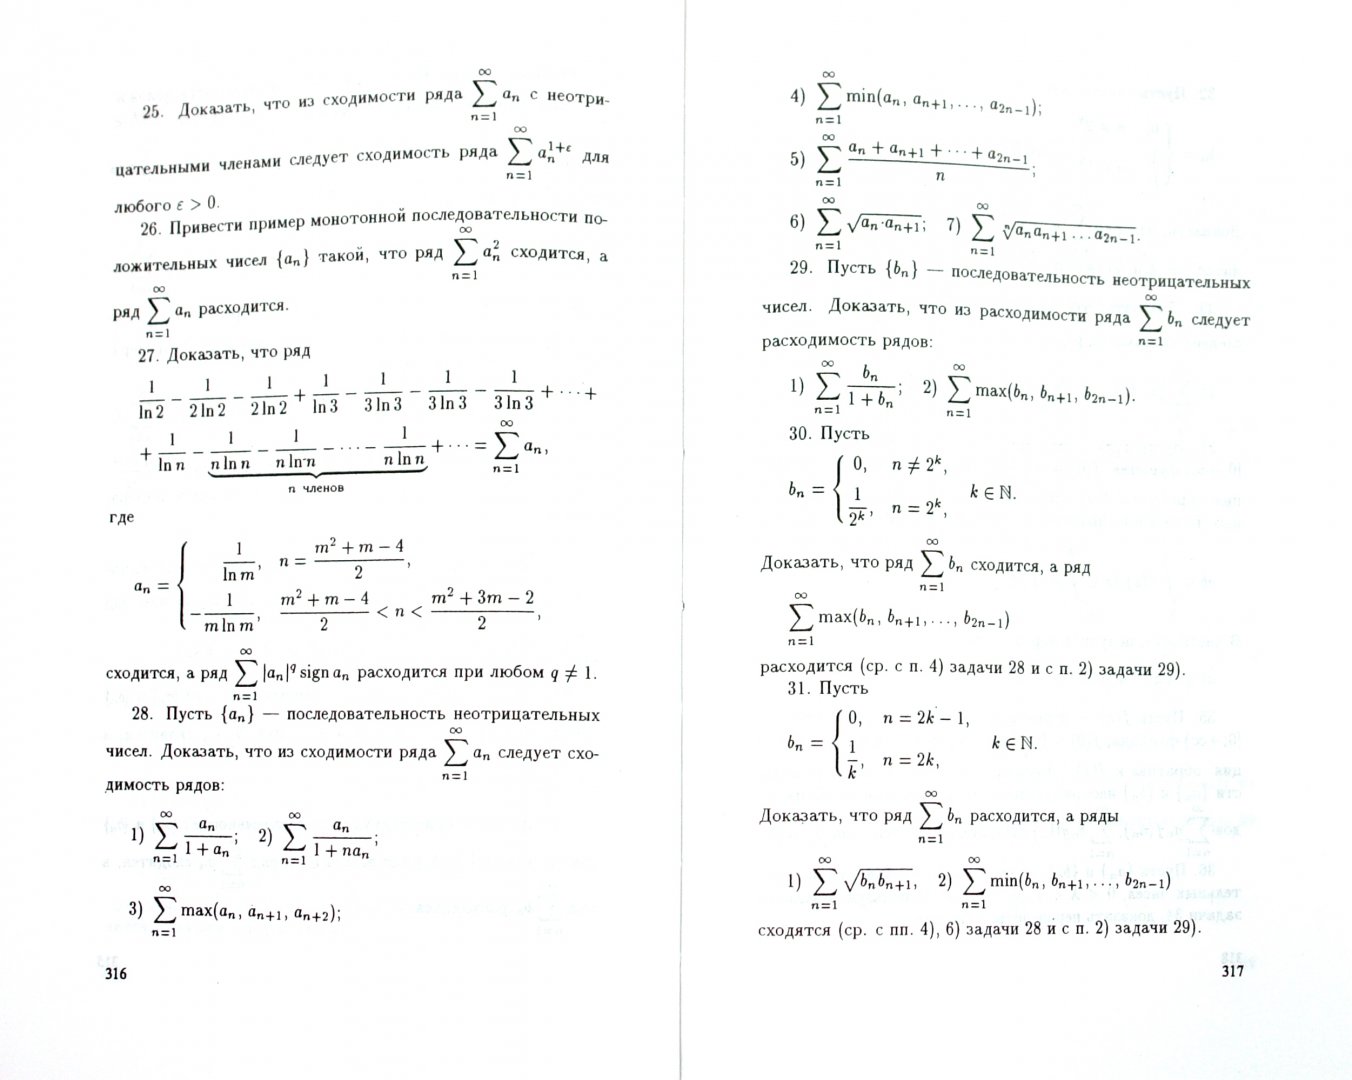 25. Доказать, что из сходимости ряда $\sum_{n=1}^{\infty} a_n$ с неотри-
цательными членами следует сходимость ряда $\sum_{n=1}^{\infty} a_n^{1+\varepsilon}$ для
любого $\varepsilon > 0$.
26. Привести пример монотонной последовательности по-
ложительных чисел $\{a_n\}$ такой, что ряд $\sum_{n=1}^{\infty} a_n^2$ сходится, а
ряд $\sum_{n=1}^{\infty} a_n$ расходится.
27. Доказать, что ряд
$\frac{1}{\ln 2} - \frac{1}{2\ln 2} - \frac{1}{2\ln 2} + \frac{1}{\ln 3} - \frac{1}{3\ln 3} - \frac{1}{3\ln 3} - \frac{1}{3\ln 3} + \cdots +$
$+ \frac{1}{\ln n} \underbrace{- \frac{1}{n\ln n} - \frac{1}{n\ln n} - \cdots - \frac{1}{n\ln n}}_{n \text{ членов}} + \cdots = \sum_{n=1}^{\infty} a_n,$
где
$a_n = \begin{cases} \frac{1}{\ln m}, & n = \frac{m^2+m-4}{2}, \\ -\frac{1}{m\ln m}, & \frac{m^2+m-4}{2} < n < \frac{m^2+3m-2}{2}, \end{cases}$
сходится, а ряд $\sum_{n=1}^{\infty} |a_n|^q \operatorname{sign} a_n$ расходится при любом $q \neq 1$.
28. Пусть $\{a_n\}$ — последовательность неотрицательных
чисел. Доказать, что из сходимости ряда $\sum_{n=1}^{\infty} a_n$ следует схо-
димость рядов:
1) $\sum_{n=1}^{\infty} \frac{a_n}{1+a_n}$; 2) $\sum_{n=1}^{\infty} \frac{a_n}{1+na_n}$;
3) $\sum_{n=1}^{\infty} \max(a_n, a_{n+1}, a_{n+2})$;
316
4) $\sum_{n=1}^{\infty} \min(a_n, a_{n+1}, \ldots, a_{2n-1})$;
5) $\sum_{n=1}^{\infty} \frac{a_n + a_{n+1} + \cdots + a_{2n-1}}{n}$;
6) $\sum_{n=1}^{\infty} \sqrt{a_n \cdot a_{n+1}}$; 7) $\sum_{n=1}^{\infty} \sqrt[n]{a_n a_{n+1} \ldots a_{2n-1}}$.
29. Пусть $\{b_n\}$ — последовательность неотрицательных
чисел. Доказать, что из расходимости ряда $\sum_{n=1}^{\infty} b_n$ следует
расходимость рядов:
1) $\sum_{n=1}^{\infty} \frac{b_n}{1+b_n}$; 2) $\sum_{n=1}^{\infty} \max(b_n, b_{n+1}, b_{2n-1})$.
30. Пусть
$b_n = \begin{cases} 0, & n \neq 2^k, \\ \frac{1}{2^k}, & n = 2^k, \end{cases} \quad k \in \mathbb{N}.$
Доказать, что ряд $\sum_{n=1}^{\infty} b_n$ сходится, а ряд
$\sum_{n=1}^{\infty} \max(b_n, b_{n+1}, \ldots, b_{2n-1})$
расходится (ср. с п. 4) задачи 28 и с п. 2) задачи 29).
31. Пусть
$b_n = \begin{cases} 0, & n = 2k-1, \\ \frac{1}{k}, & n = 2k, \end{cases} \quad k \in \mathbb{N}.$
Доказать, что ряд $\sum_{n=1}^{\infty} b_n$ расходится, а ряды
1) $\sum_{n=1}^{\infty} \sqrt{b_n b_{n+1}}$, 2) $\sum_{n=1}^{\infty} \min(b_n, b_{n+1}, \ldots, b_{2n-1})$
сходятся (ср. с пп. 4), 6) задачи 28 и с п. 2) задачи 29).
317